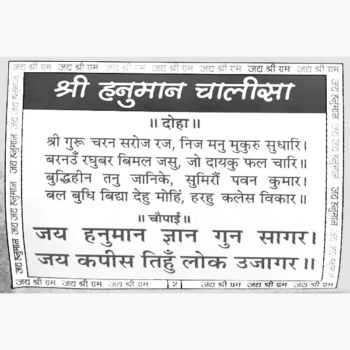 जय श्री राम जय श्री राम जय श्री राम जय श्री राम जय श्री राम
श्री हनुमान चालीसा
॥ दोहा ॥
श्री गुरू चरन सरोज रज, निज मनु मुकुरु सुधारि।
बरनउँ रघुबर बिमल जसु, जो दायकु फल चारि॥
बुद्धिहीन तनु जानिके, सुमिरौं पवन कुमार।
बल बुधि बिद्या देहु मोहिं, हरहु कलेस विकार॥
॥ चौपाई ॥
जय हनुमान ज्ञान गुन सागर।
जय कपीस तिहुँ लोक उजागर॥
जय श्री राम जय श्री राम जय श्री राम 2 जय श्री राम जय श्री राम जय श्री राम
जय हनुमान जय हनुमान जय हनुमान
जय हनुमान जय हनुमान जय हनुमान